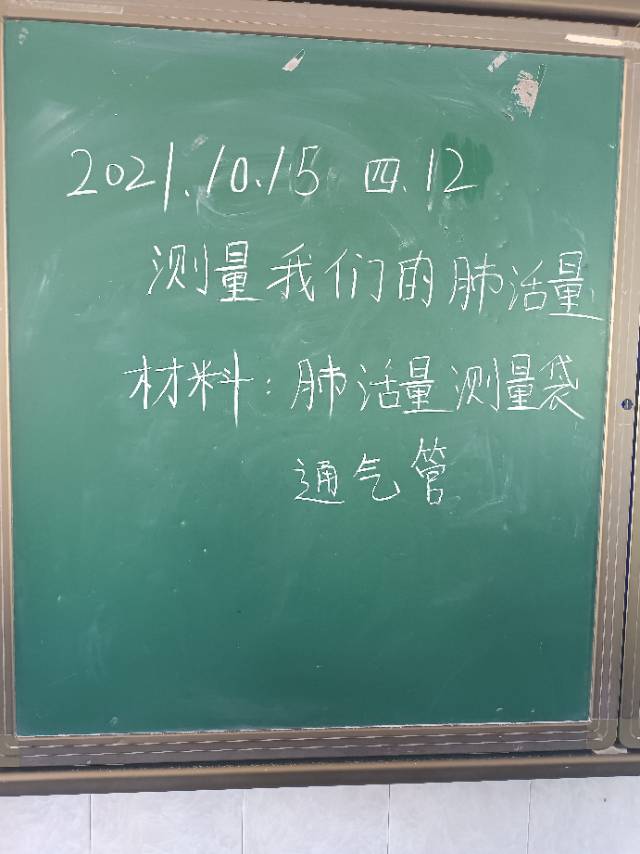 2021.10.15 四.12
测量我们的肺活量
材料：肺活量测量袋
通气管